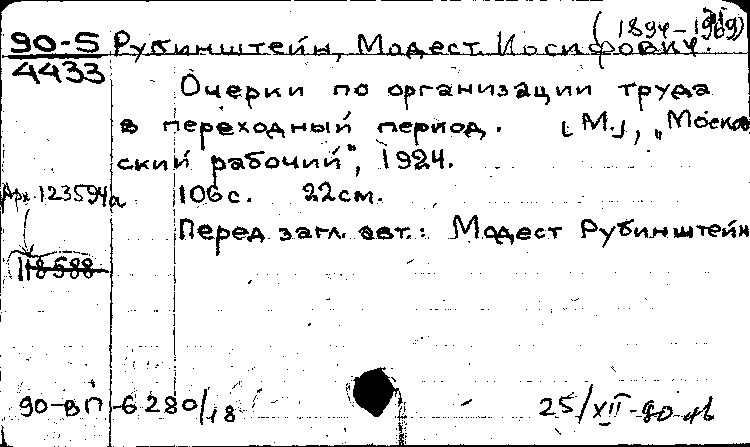 (1894-1969)
90-5 Рубинштейн, Модест Иосифович.
4433
Очерки по организации труда
в переходный период. [М.], „Москов
ский рабочий", 1924.
Арх. 123594а 106 с. 22 см.
Перед загл. авт.: Модест Рубинштейн
118588
90-ВП-6280/18 25/XII-90